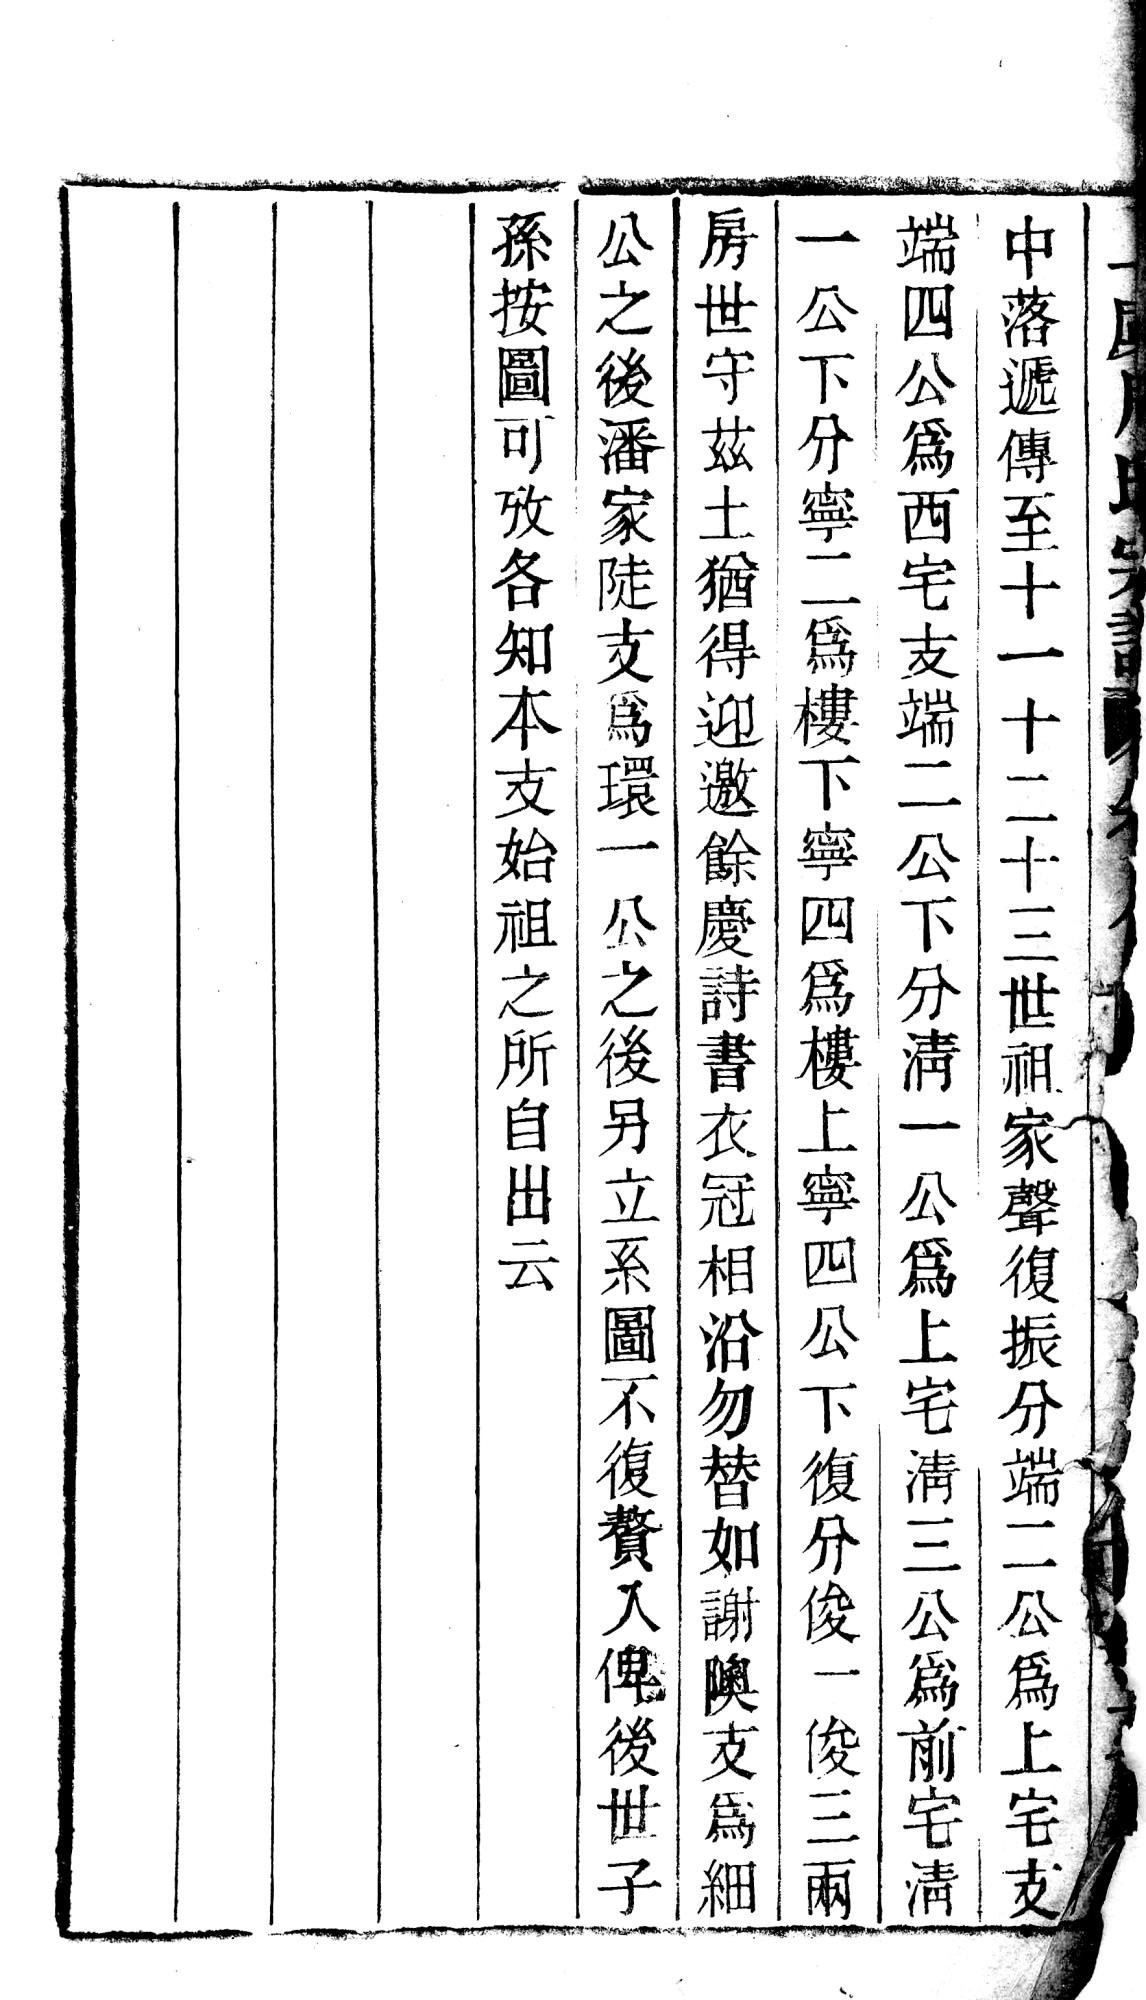 中落遞傳至十一十二十三世祖家聲復振分端二公為上宅支
端四公為西宅支端二公下分淸一公為上宅淸三公為前宅淸
一公下分寧二為樓下寧四為樓上寧四公下復分俊一俊三兩
房世守茲土猶得迎邀餘慶詩書衣冠相沿勿替如謝隩支為細
公之後潘家陡支為環一公之後另立系圖不復贅入俾後世子
孫按圖可攷各知本支始祖之所自出云